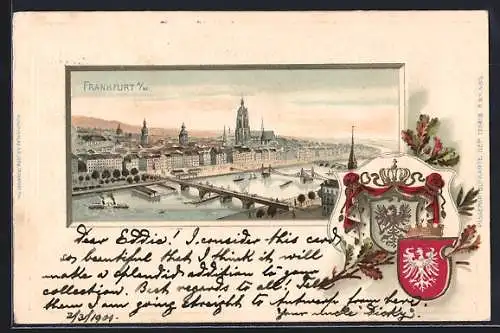 FRANKFURT a/M.
Dear Eddie! I consider this card
so beautiful that I think it will
make a splendid addition to your
collection. Best regards to all! Tell
them I am going straight to Antwerp from here.
2/3/1901. Your uncle